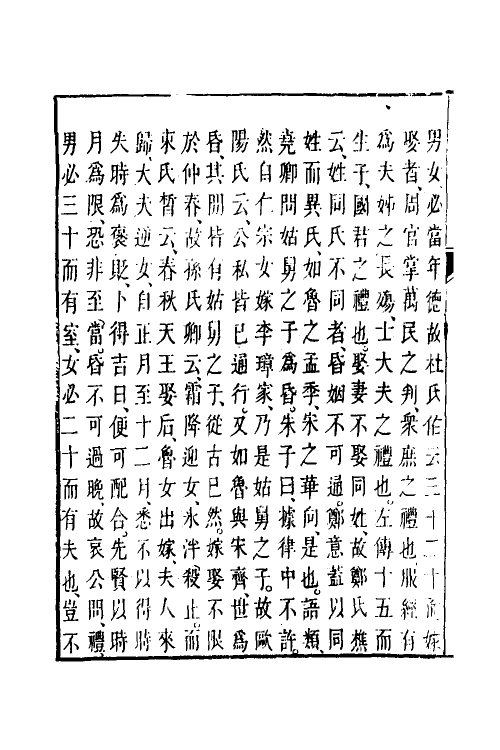 男女必當年德故杜氏佑云三十二十而嫁
娶者、周官掌萬民之判、衆庶之禮也、服經有
爲夫姊之長殤、士大夫之禮也。左傳十五而
生子、國君之禮也。娶妻不娶同姓、故鄭氏樵
云、姓同氏不同者、昏姻不可通。鄭意蓋以同
姓而異氏、如魯之孟季、宋之華向、是也。語類、
堯卿問姑舅之子爲昏。朱子曰、據律中不許。
然自仁宗女嫁李璋家、乃是姑舅之子。故歐
陽氏云、公私皆已通行。又如魯與宋齊、世爲
昏、其間皆有姑舅之子、從古已然。嫁娶不限
於仲春、故孫氏卿云、霜降逆女、冰泮殺止。而
束氏晳云、春秋天王娶后、魯女出嫁、夫人來
歸、大夫逆女、自正月至十二月、悉不以得時
失時爲褒貶、卜得吉日、便可配合。先賢以時
月爲限、恐非至當。昏不可過晚故哀公問、禮、
男必三十而有室、女必二十而有夫也、豈不